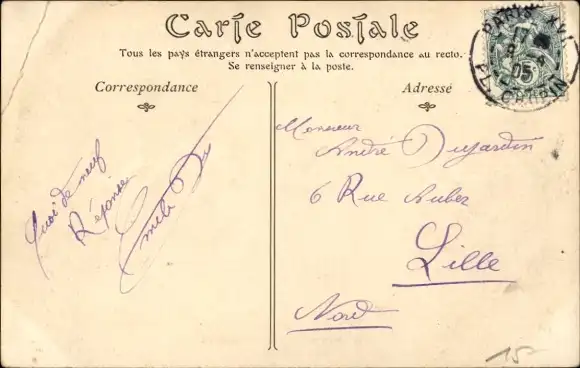 Carte Postale
Tous les pays étrangers n'acceptent pas la correspondance au recto.
Se renseigner à la poste.
Correspondance
Quoi de neuf
Réponse
Emile
Adresse
PARIS XVI
17
05
PL. CHOPIN
Monsieur
André Dujardin
6 Rue Auber
Lille
Nord
15